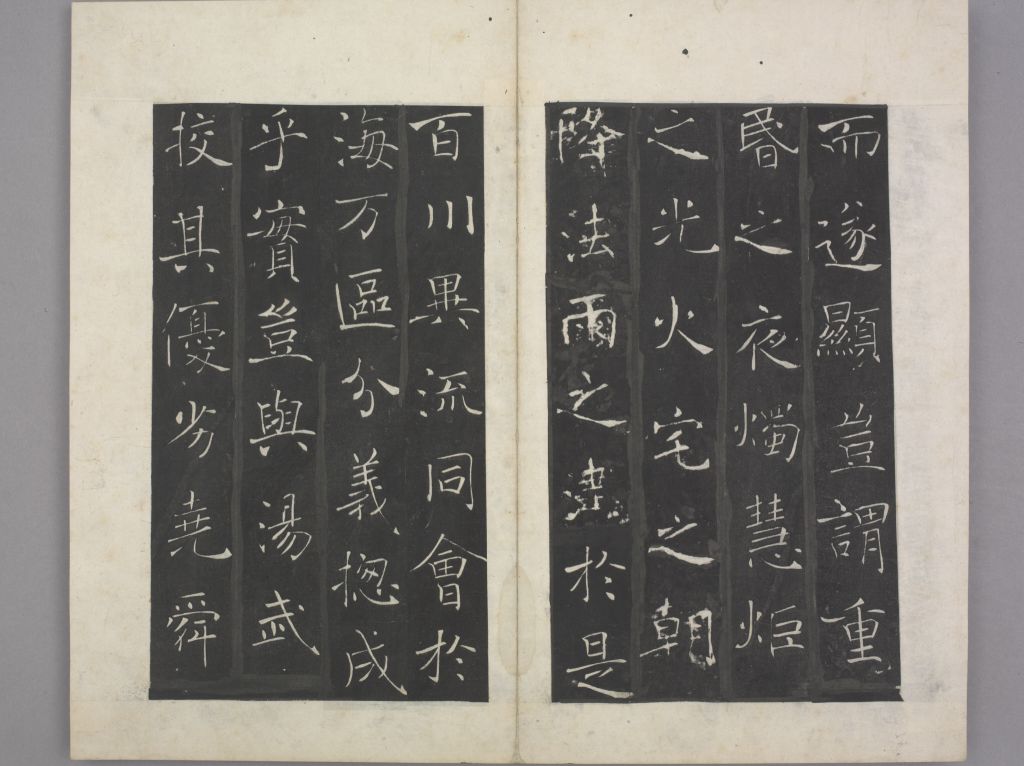 而遂顯豈謂重
昬之夜燭慧炬
之光火宅之朝
降法雨之澤於是
百川異流同會於
海万區分義揔成
乎實豈與湯武
校其優劣堯舜